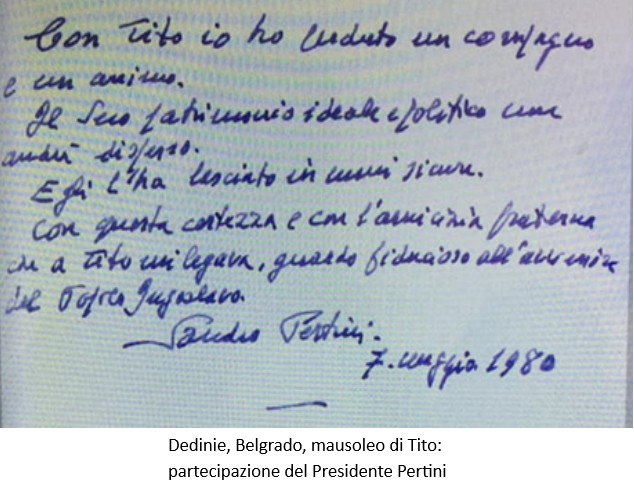 Con Tito io ho perduto un compagno
e un amico.
Il Suo patrimonio ideale e politico non
andrà disperso.
Egli l'ha lasciato in mani sicure.
Con questa certezza e con l'amicizia fraterna
che a Tito mi legava, guardo fiducioso all'avvenire
del Popolo Jugoslavo.
Sandro Pertini.
7. maggio 1980
Dedinie, Belgrado, mausoleo di Tito:
partecipazione del Presidente Pertini